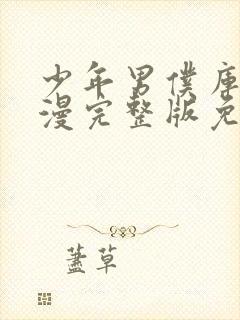 少年男僕庫
漫完整版免
蓋草